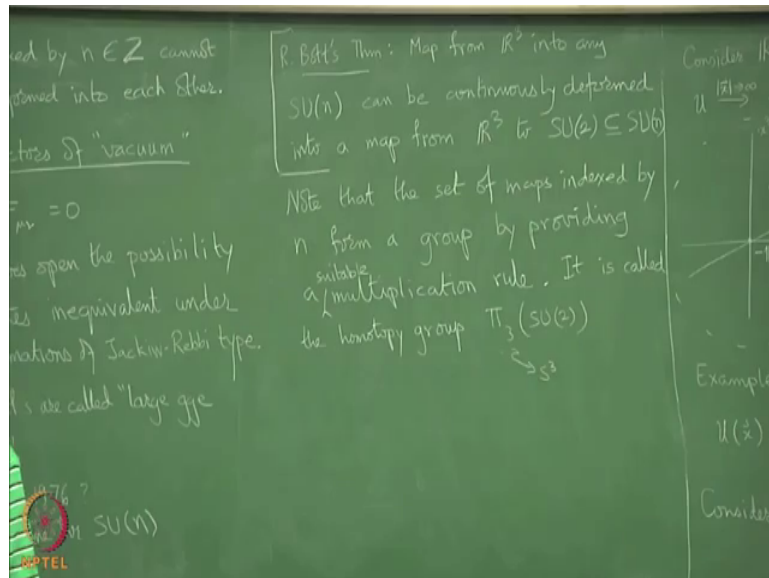 by n ∈ Z cannot
into each other.
of "vacuum"
= 0
open the possibility
inequivalent under
of Jackiw-Rebbi type.
are called "large gge
1976 ?
SU(n)
NPTEL
R. Bott's Thm: Map from R³ into any
SU(n) can be continuously deformed
into a map from R³ to SU(2) ⊆ SU(n)
Note that the set of maps indexed by
n form a group by providing
a suitable multiplication rule. It is called
the homotopy group Π₃(SU(2))
S³
Consider
U |x|→∞
Example
U(x)
Consider